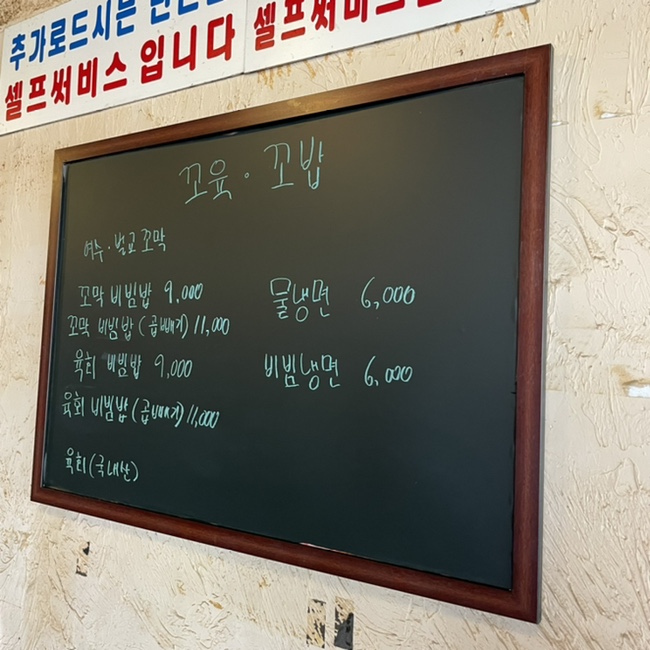 추가로드시는
셀프써비스입니다
셀프써비스
꼬육 · 꼬밥
여수 · 벌교 꼬막
꼬막 비빔밥 9,000
꼬막 비빔밥 (곱빼기) 11,000
육회 비빔밥 9,000
육회 비빔밥 (곱빼기) 11,000
육회 (국내산)
물냉면 6,000
비빔냉면 6,000